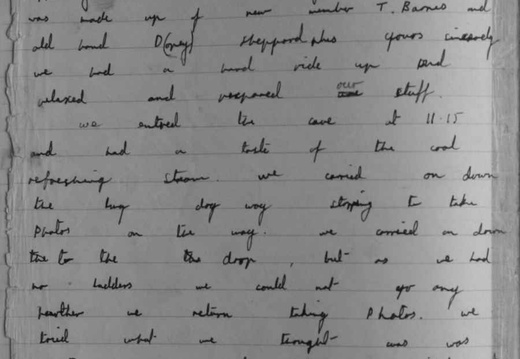 was made up of new member T. Barnes and
old hand D(oney) Sheppard plus yours sincerely
we had a hand ride up and
relaxed and prepared our stuff.
we entred the cave at 11.15
and had a taste of the cool
refreshing stream. we carried on down
the big dry way stopping to take
Photos on the way. we carried on down
the to the drop, but as we had
no ladders we could not go any
further we return taking Photos. we
tried what we thought was was